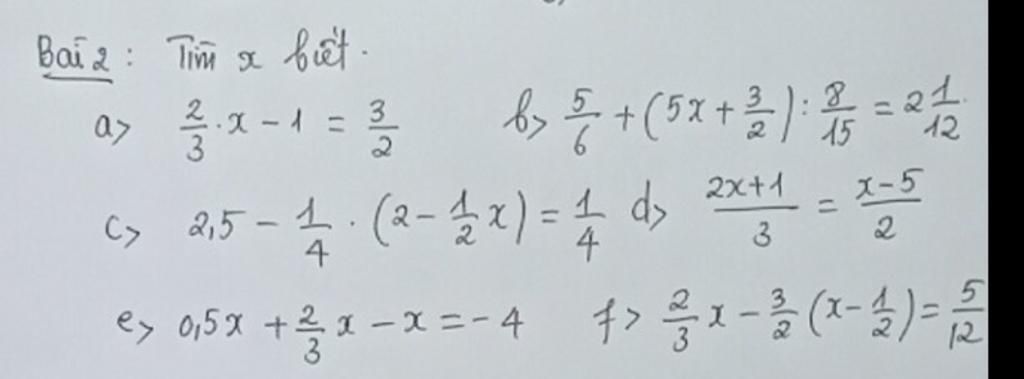 Bài 2 : Tìm x biết.
a> 2/3 . x - 1 = 3/2 b> 5/6 + (5x + 3/2) : 8/15 = 2 1/12.
c> 2,5 - 1/4 . (2 - 1/2 x) = 1/4 d> (2x+1)/3 = (x-5)/2
e> 0,5x + 2/3 x - x = -4 f> 2/3 x - 3/2 (x - 1/2) = 5/12